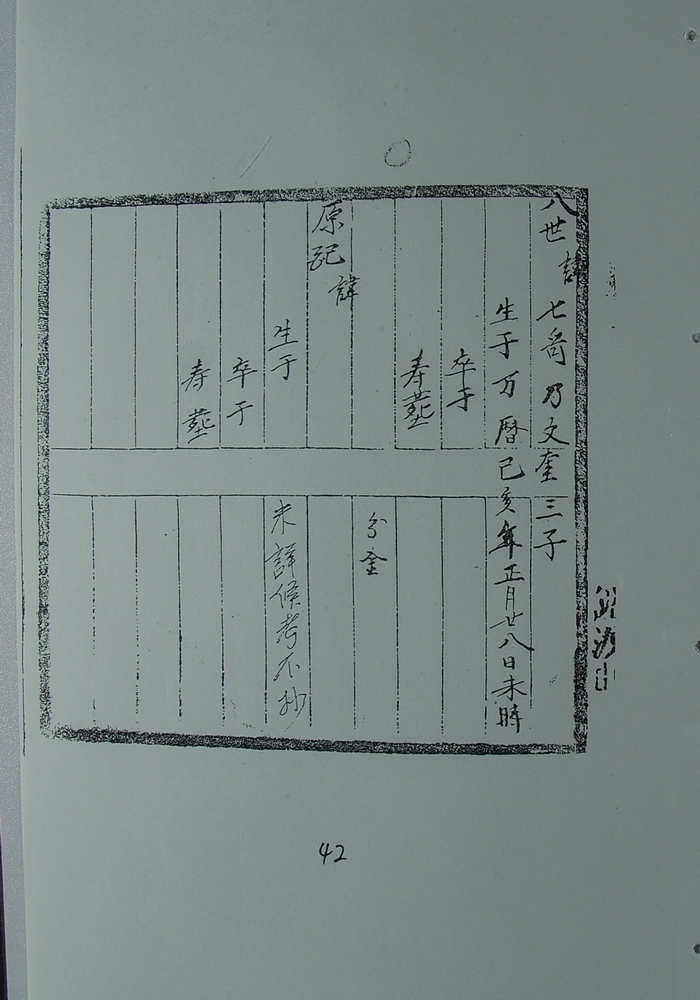 八世諱 七尚乃文奎三子
生于万暦己亥年正月廿八日未時
卒于
寿塟
分金
原配 諱
生于 未詳候考不抄
卒于
寿塟
42